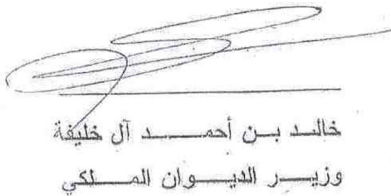 خالد بن أحمد آل خليفة
وزير الديوان الملكي